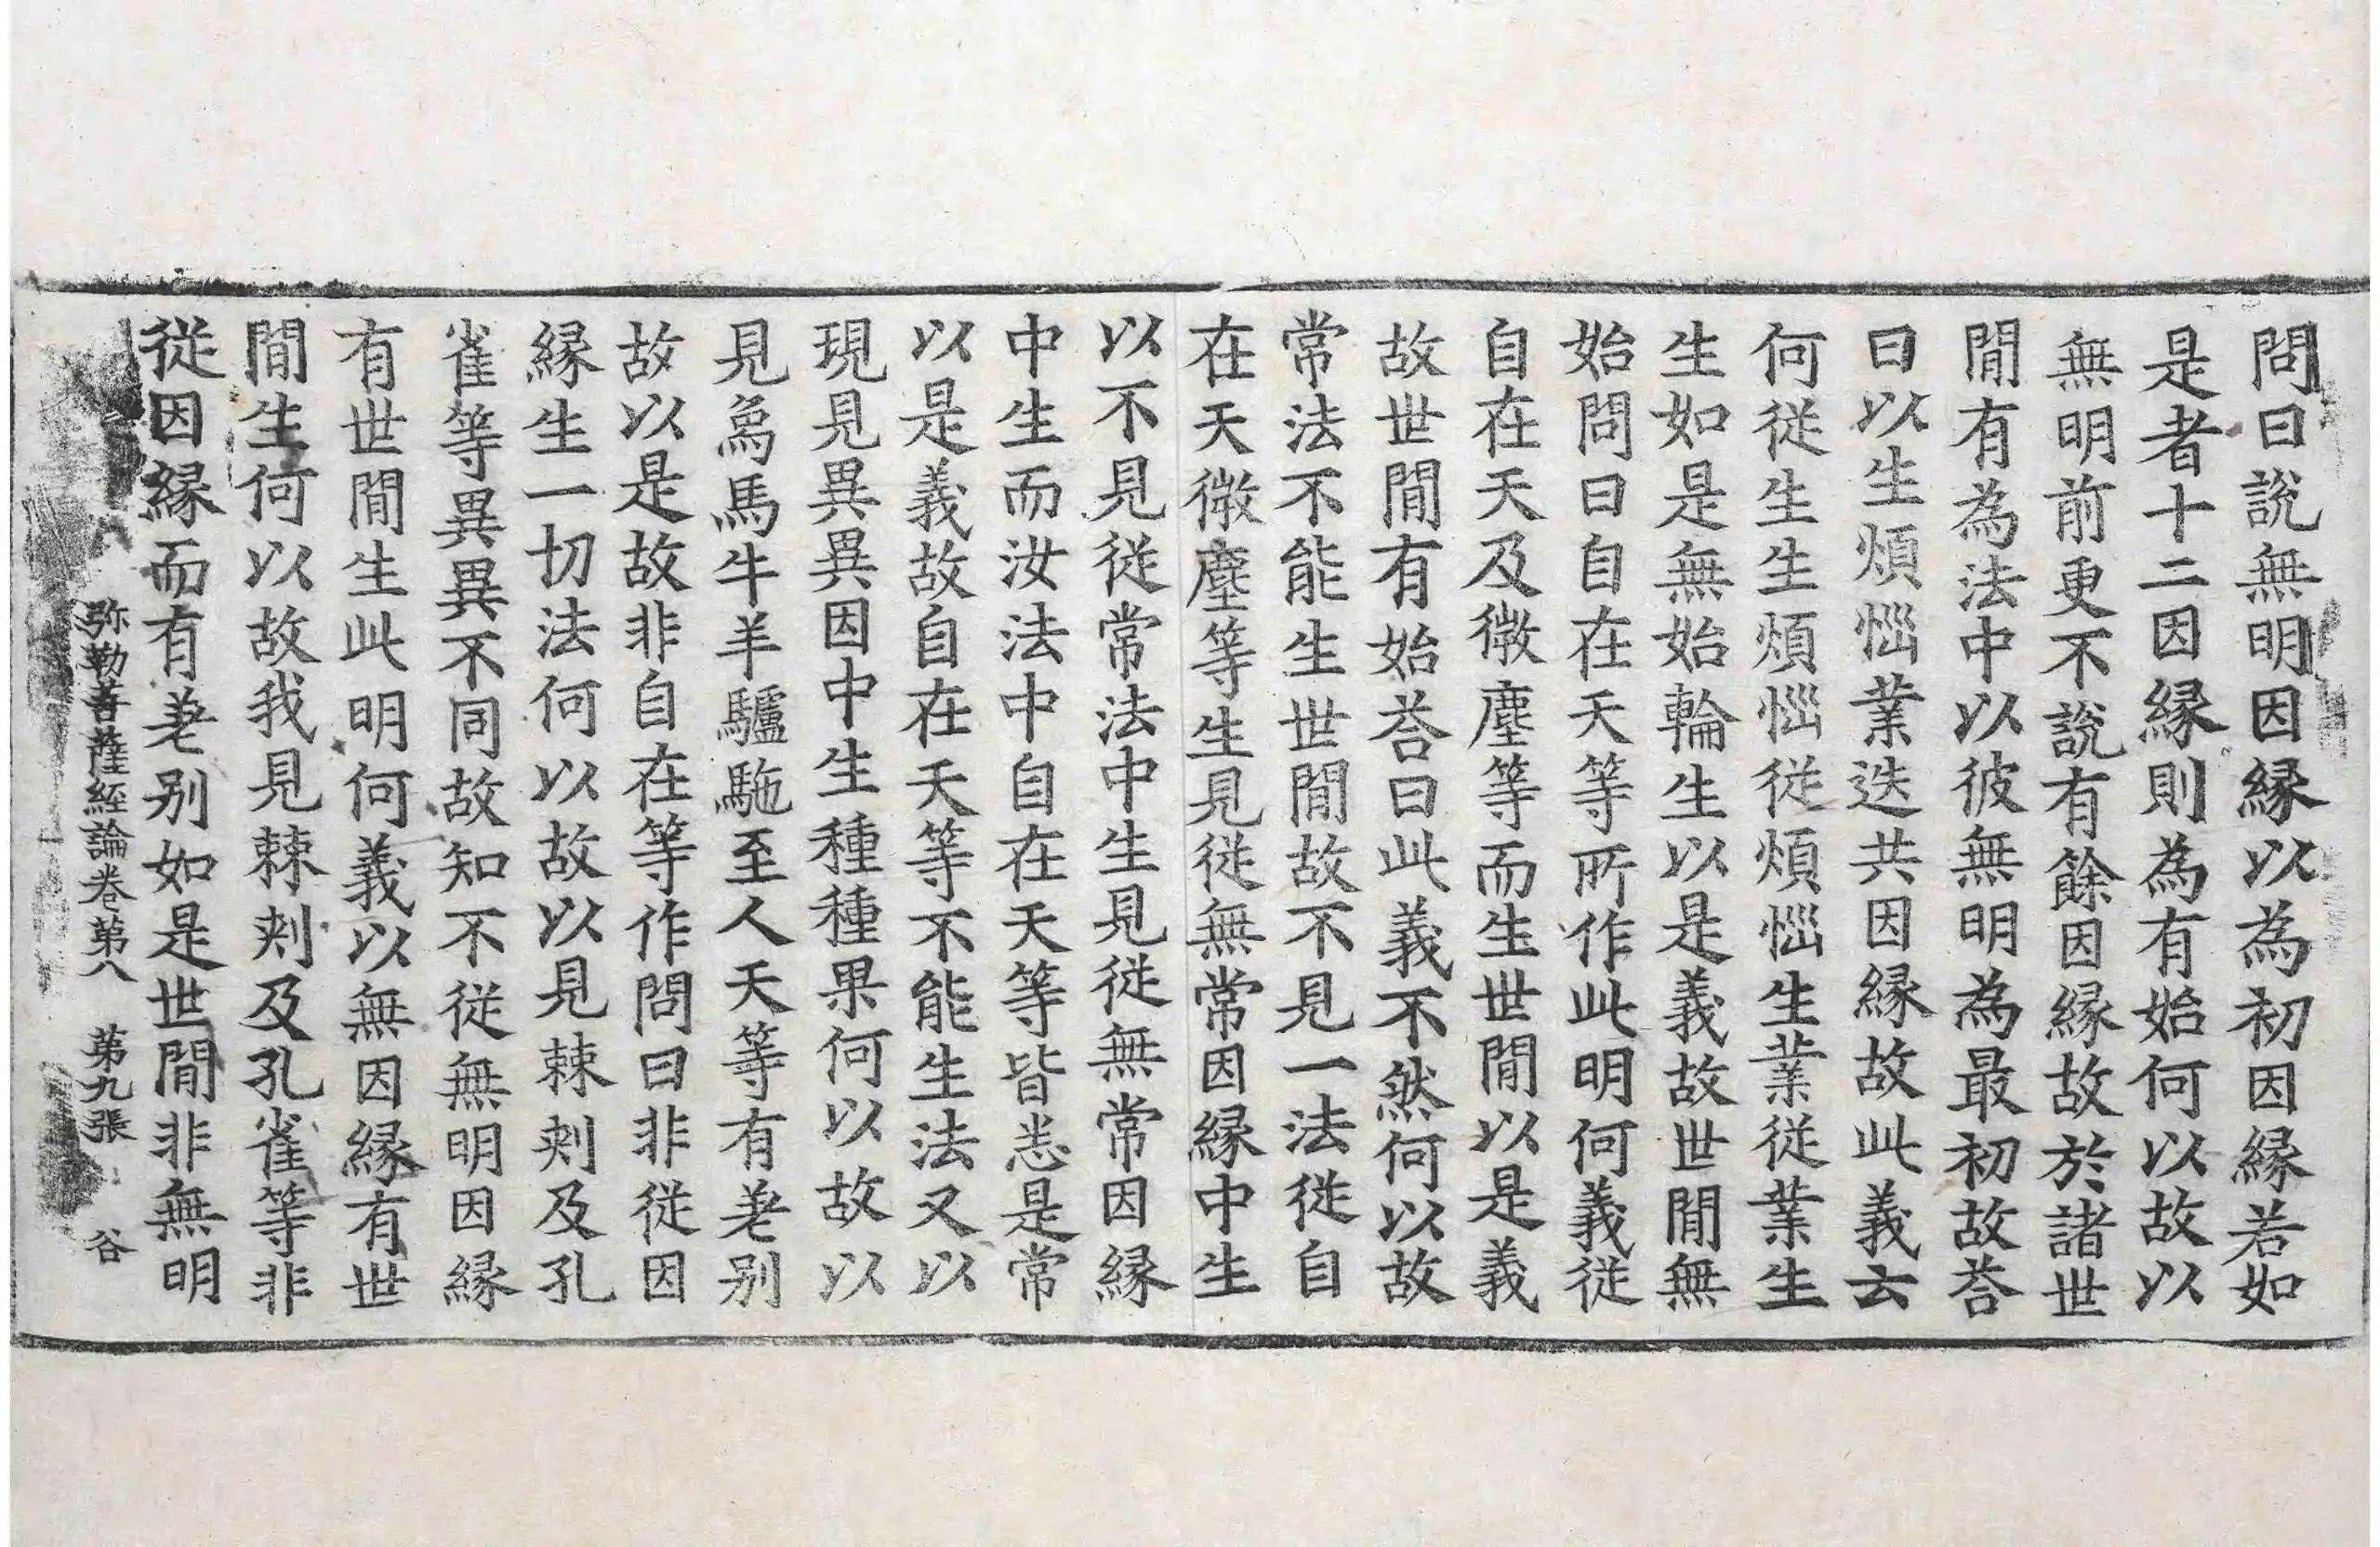 問曰說無明因縁以為初因縁若如
是者十二因縁則為有始何以故以
無明前更不說有餘因縁故於諸世
閒有為法中以彼無明為最初故荅
曰以生煩惱業迭共因縁故此義云
何從生生煩惱從煩惱生業從業生
生如是無始輪生以是義故世閒無
始問曰自在天等所作此明何義從
自在天及微塵等而生世閒以是義
故世閒有始荅曰此義不然何以故
常法不能生世閒故不見一法從自
在天微塵等生見從無常因縁中生
以不見從常法中生見從無常因縁
中生而汝法中自在天等皆悉是常
以是義故自在天等不能生法又以
現見異異因中生種種果何以故以
見象馬牛羊驢馳至人天等有差别
故以是故非自在等作問曰非從因
縁生一切法何以故以見棘刾及孔
雀等異異不同故知不從無明因縁
有世閒生此明何義以無因縁有世
閒生何以故我見棘刾及孔雀等非
從因縁而有差别如是世閒非無明
弥勒菩薩經論卷第八 第九張 谷